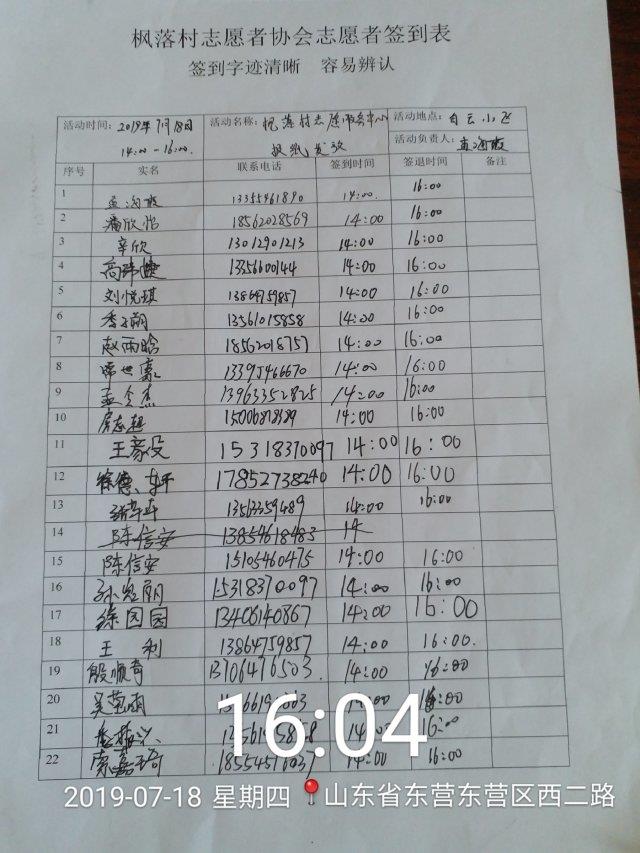 枫落村志愿者协会志愿者签到表
签到字迹清晰 容易辨认
活动时间：2019年7月18日 活动名称：枫落村志愿服务中心 活动地点：白云小区
14:00-16:00 活动负责人：孟海霞
序号 实名 联系电话 签到时间 签退时间 备注
1 孟海霞 13355461890 14:00 16:00
2 潘欣怡 18562028569 14:00 16:00
3 辛欣 13012901213 14:00 16:00
4 高玮婕 13356600144 14:00 16:00
5 刘悦琪 13864759857 14:00 16:00
6 13561015858 14:00 16:00
7 赵雨晗 18562018757 14:00 16:00
8 13395466670 14:00 16:00
9 孟令杰 13963352825 14:00 16:00
10 14:00 16:00
11 王豪俊 15318370097 14:00 16:00
12 17852738240 14:00 16:00
13 13563359489 14:00 16:00
14 陈信安 13854618483 14
15 陈信安 15105460475 14:00 16:00
16 15318370097 14:00 16:00
17 徐园园 13406140867 14:00 16:00
18 王利 13864759857 14:00 16:00.
19 殷顺奇 13706476503 14:00 16:00
20 14:00 16:00
21 16:00
22 14:00 16:00
16:04
2019-07-18 星期四 山东省东营东营区西二路